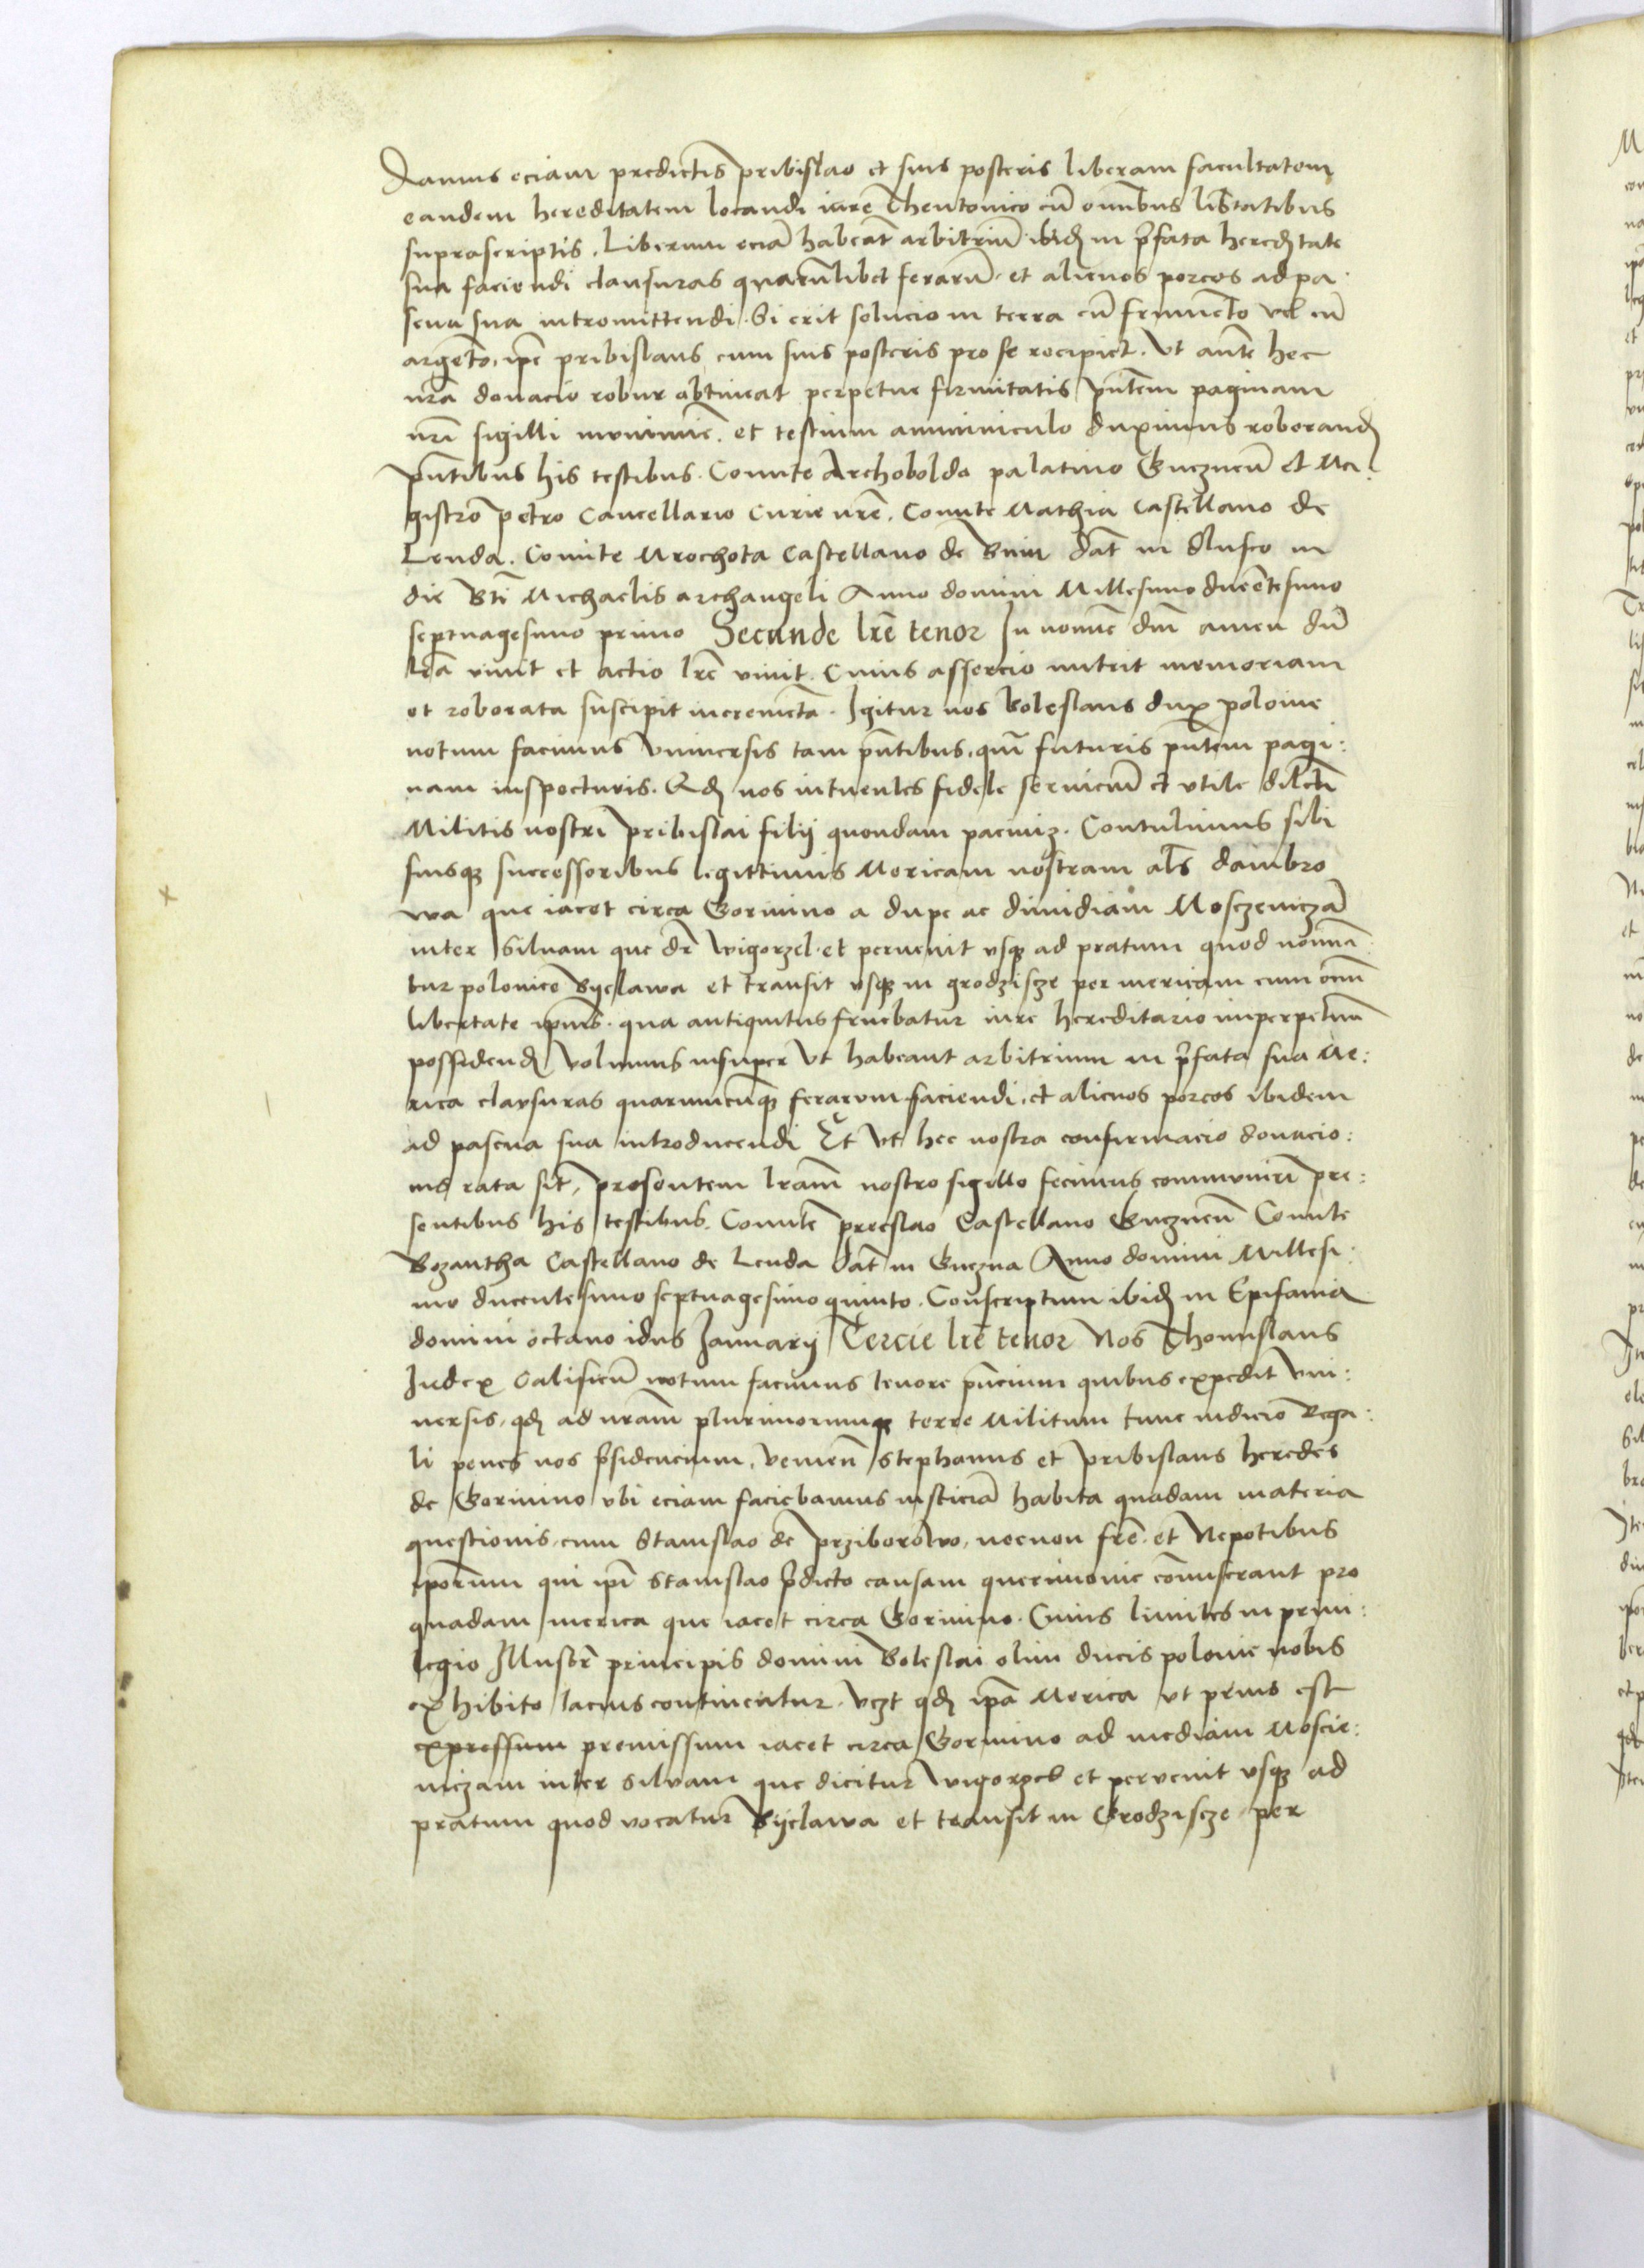 Damus eciam predictis pribislao et suis posteris liberam facultatem
eandem hereditatem locandi iure Theutonico cū omībus lib̄tatibus
suprascriptis. Liberum eciā habeāt arbitriū ibidꝫ in p̄fata heredꝫtate
sua faciendi clausuras quarūlibet ferarū. et alienos porcos ad pa
scua sua intromittendi. Si erit solucio in terra cū frumēto vel cū
argēto, ip̄e pribislaus cum suis posteris pro se recipiet. Vt autē hec
nrā donacio robur obtineat perpetue firmitatis pn̄tem paginam
nrī sigilli munimīe. et testium amminiculo duximus roborandꝫ
pn̄tibus his testibus. Comite Archobolda palatino Gnezneń et Ma:
gistro petro Cancellario Curie nrē. Comite Mathia Castellano de
Lenda. Comite Mrochota Castellano de Bnin Dat̄ in Slusco in
die Btī Michaelis archangeli Anno domini Millesimo ducētesimo
septuagesimo primo Secunde lrē tenor In nomīe dnī amen dū
lrā viuit et actio lrē viuit. Cuius assercio nutrit memoriam
et roborata suscipit incremēta. Igitur nos Boleslaus dux polonie
notum facimus Vniuersis tam pn̄tibus, quā futuris pn̄tem pagi:
nam inspecturis. Qdꝫ nos intuentes fidele seruiciū et vtile dilcti
Militis nostri Pribislai filij quondam paciniz. Contulimus sibi
suisqꝫ successoribus legittimis Mericam nostram als dambro
wa que iacet circa Gorinino a dupe ac dimidiam Mosczeniczā
inter Siluam que dr̄ wigorzel. et peruenit vsqꝫ ad pratum quod nomīa
tur polonice Byelawa et transit vsqꝫ in grodziscze per mericam cum omī
libertate ip̄ius. qua antiquitus fruebatur iure hereditario inperpetuū
possidendꝫ volumus insuper Vt habeant arbitrium in p̄fata sua Me:
rica clausuras quarumcūqꝫ ferarum faciendi, et alienos porcos ibidem
ad pascua sua introducendi Et Vt hec nostra confirmacio donacio:
nis rata sit, presentem lrām nostro sigillo fecimus communiri pre:
sentibus his testibus. Comite preeslao Castellano Gnezneń Comite
Bozantha Castellano de Lenda Dat̄ in Gnezna Anno domini Millesi:
mo ducentesimo septuagesimo quinto. Conscriptum ibidꝫ in Epifania
domini octauo idus Januarij Tercie lrē tenor Nos Thomislaus
Judex Calisień notum facimus tenore pn̄cium quibus expedit Vni:
uersis, qdꝫ ad nrām plurimorumqꝫ terre Militum tunc iudicio Rega:
li penes nos p̄sidencium, venień Stephanus et Pribislaus heredes
de Gorinino vbi eciam faciebamus iusticiā habita quadam materia
questionis, cum Stanislao de Prziborowo, necnon frē. et Nepotibus
ip̄orum qui ip̄i Stanislao p̄dicto causam querimonie com̄iserant pro
quadam merica que iacet circa Gorinino. Cuius limites in priui:
legio Illustr̄ principis domini Boleslai olim ducis polonie nobis
exhibito lacius continentur. Vczt qdꝫ ip̄a Merica vt prius est
expressum premissum iacet circa Gorinino ad mediam Moscie:
niczam inter siluam que dicitur Wigorzel et peruenit vsqꝫ ad
pratum quod vocatur Byelawa et transit in Grodziscze per